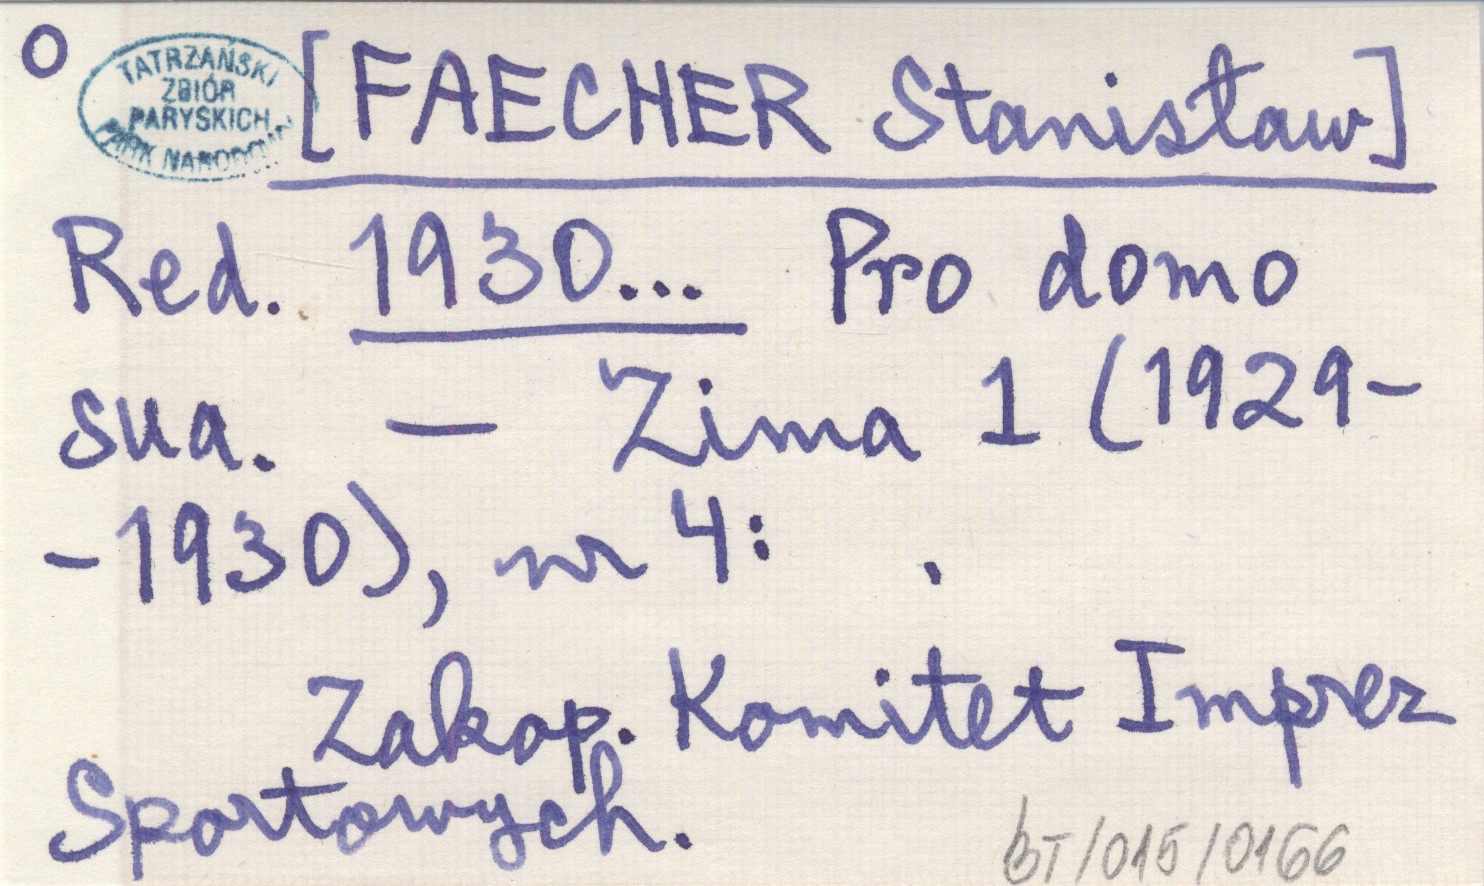 O
TATRZAŃSKI
ZBIÓR
PARYSKICH
PARK NARODOWY
[FAECHER Stanisław]
Red. 1930... Pro domo
sua. — Zima 1 (1929-
-1930), nr 4: .
Zakop. Komitet Imprez
Sportowych.
BT/015/0166